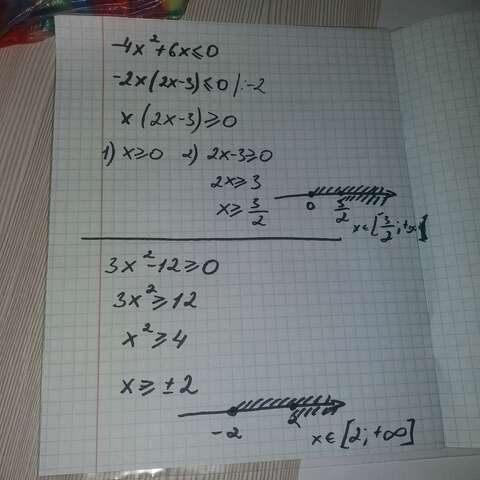 -4x²+6x≤0
-2x(2x-3)≤0 |:-2
x(2x-3)≥0
1) x≥0 2) 2x-3≥0
2x≥3
x≥3/2
0 3/2
x∈[3/2;+∞]
3x²-12≥0
3x²≥12
x²≥4
x≥±2
-2 2
x∈[2;+∞]